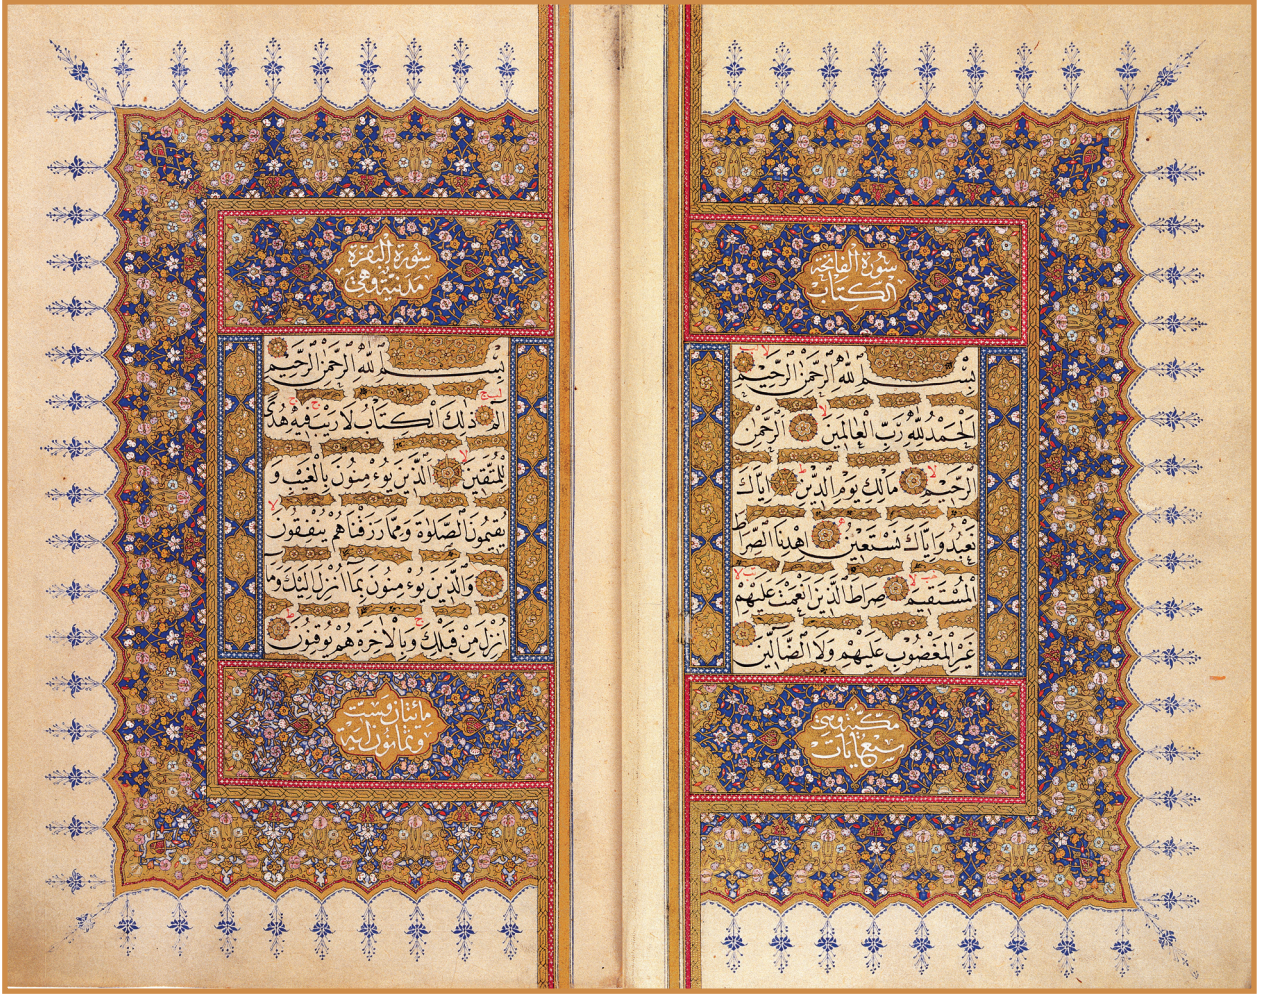 سورة الفاتحة
الكتاب
بِسْمِ اللهِ الرَّحْمٰنِ الرَّحِيْمِ
اَلْحَمْدُ لِلّٰهِ رَبِّ الْعَالَمِيْنَ الرَّحْمٰنِ
الرَّحِيْمِ مَالِكِ يَوْمِ الدِّيْنِ اِيَّاكَ
نَعْبُدُ وَاِيَّاكَ نَسْتَعِيْنُ اِهْدِنَا الصِّرَاطَ
الْمُسْتَقِيمَ صِرَاطَ الَّذِيْنَ اَنْعَمْتَ عَلَيْهِمْ
غَيْرِ الْمَغْضُوْبِ عَلَيْهِمْ وَلَا الضَّٓالِّيْنَ
مكية وهي
سبع ايات
سورة البقرة
مدنية وهي
بِسْمِ اللهِ الرَّحْمٰنِ الرَّحِيْمِ
الٓمٓ ذٰلِكَ الْكِتَابُ لَا رَيْبَ فِيْهِ هُدًى
لِلْمُتَّقِيْنَ اَلَّذِيْنَ يُوءْمِنُوْنَ بِالْغَيْبِ وَ
يُقِيْمُوْنَ الصَّلٰوةَ وَمِمَّا رَزَقْنَاهُمْ يُنْفِقُوْنَ
وَالَّذِيْنَ يُوءْمِنُوْنَ بِمَٓا اُنْزِلَ اِلَيْكَ وَمَٓا
اُنْزِلَ مِنْ قَبْلِكَ وَبِالْاٰخِرَةِ هُمْ يُوْقِنُوْنَ
مائتان وست
وثمانون اية